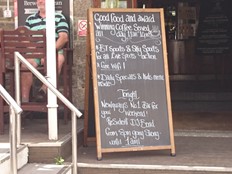 Good food and award
Winning Coffee Served
all day Here &
BT Sports & Sky Sports
for all live Sports
Free WiFi!
Daily Specials & main menu
inside
Tonight
Newquay's No.1 Bar for
your weekend!
Resident DJ
from 9pm going strong
until 1am!